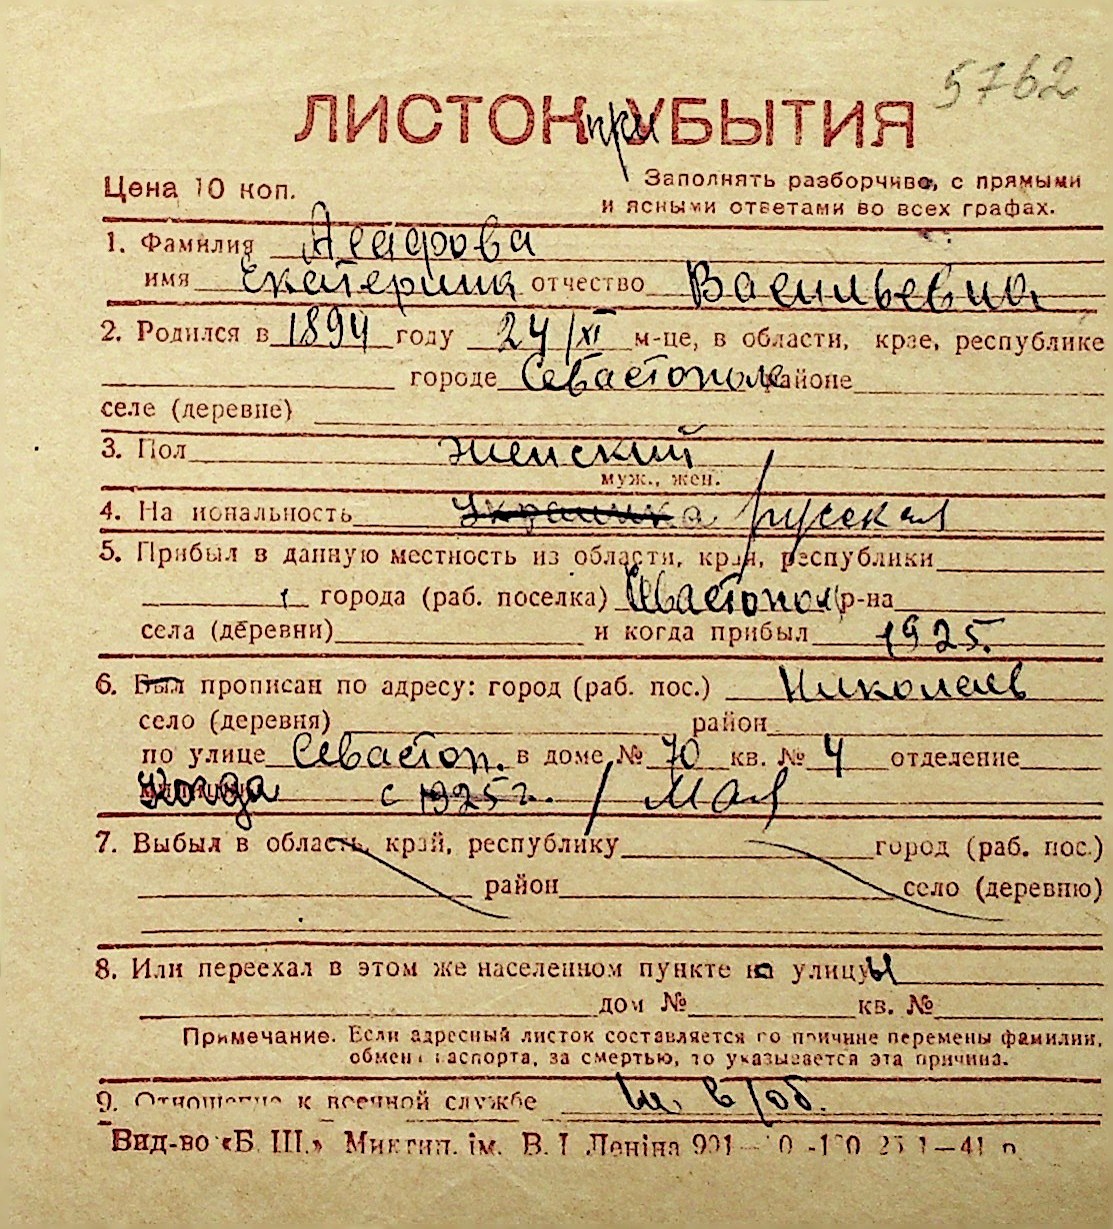 5762
ЛИСТОК приБЫТИЯ
Цена 10 коп.
Заполнять разборчиво, с прямыми
и ясными ответами во всех графах.
1. Фамилия Агафрова
имя Екатерина отчество Васильевна
2. Родился в 1894 году 24/XI м-це, в области, крае, республике
городе Севастополе районе
селе (деревне)
3. Пол женский
муж., жен.
4. На иональность украинка русская
5. Прибыл в данную местность из области, край, республики
города (раб. поселка) Севастополь р-на
села (деревни) и когда прибыл 1925.
6. Был прописан по адресу: город (раб. пос.) Николаев
село (деревня) район
по улице Севастоп. в доме № 70 кв. № 4 отделение
Когда с 1925 г. / Мая
7. Выбыл в область, край, республику город (раб. пос.)
район село (деревню)
8. Или переехал в этом же населенном пункте с улицы
дом № кв. №
Примечание. Если адресный листок составляется по причине перемены фамилии,
обмена паспорта, за смертью, то указывается эта причина.
9. Отношение к военной службе н. в/об.
Вид-во «Б. Ш.» Миктип. ім. В. І Леніна